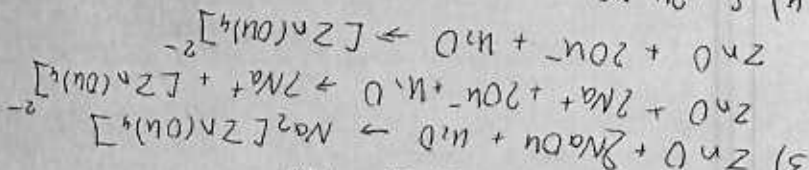 3) ZnO + 2NaOH + H₂O → Na₂[Zn(OH)₄]
ZnO + 2Na⁺ + 2OH⁻ + H₂O → 2Na⁺ + [Zn(OH)₄]²⁻
ZnO + 2OH⁻ + H₂O → [Zn(OH)₄]²⁻
4)